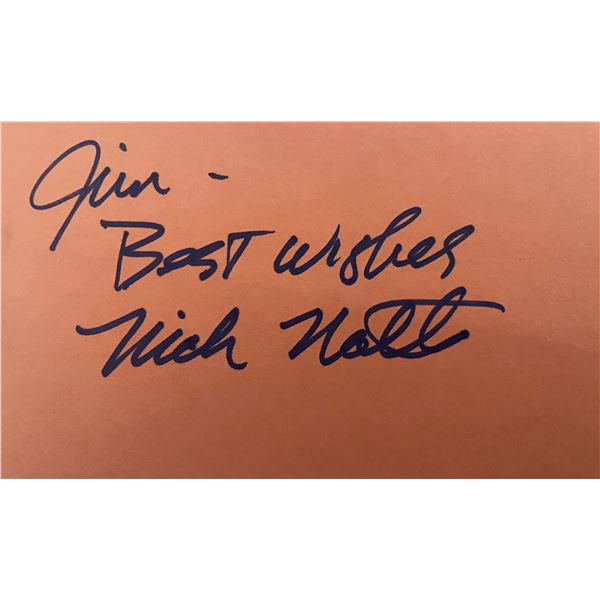 Jim -
Best wishes
Nick Nolte